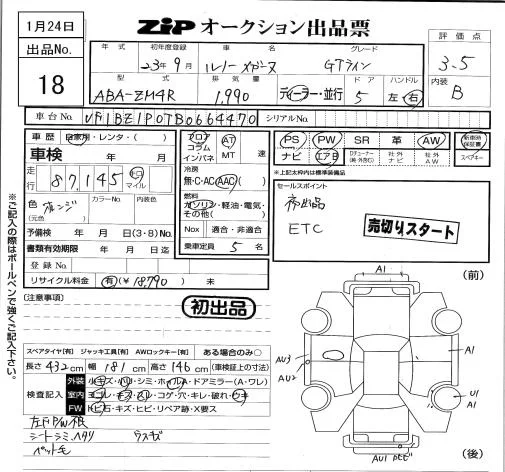 1月24日
ZIP オークション出品票
出品No.
18
年式 初年度登録 車名 グレード
23年9月 ルノー メガーヌ GTライン
型式 排気量 ドア ハンドル
ABA-ZM4R 1,990 ディーラー・並行 5 左・右
評価点
3.5
内装
B
車台No. VF1BZ1P0TB0664470 シリアルNo.
車歴 自家用・レンタ・( )
車検 年 月
走行 87,145 キロ マイル
色 オレンジ カラーNo. 内装色
(元色)
予備検 年 月 日(3・8)No.
書類有効期限 年 月 日
登録No.
リサイクル料金 有(¥18,790) 未
フロア
コラム
インパネ
AT
MT 速
冷房
無・C・AC・AAC( )
燃料
ガソリン・軽油・電気・
その他( )
Nox 適合・非適合
乗車定員 5 名
PS PW SR 革 AW 新車時保証書
ナビ エアB 社外ナビ 社外AW スペアキー
※上記太枠内は標準装備品
セールスポイント
初出品
ETC
売切りスタート
※ご記入の際はボールペンで強くご記入下さい。
[注意事項]
初出品
スペアタイヤ[有] ジャッキ工具[有] AWロックキー[有] ある場合のみ○
長さ 432 cm 幅 181 cm 高さ 146 cm (車検証上の寸法)
検査記入
外装 小キズ・ハリ・シミ・ホイルA・ドアミラー(A・ワレ)
室内 ヨゴレ・キズ・スレ・コゲ・穴・キレ・破れ・ウキ
FW トビ石・キズ・ヒビ・リペア跡・X要ス
シートシミ、ヘタリ ウスキズ
ペット毛
(前)
A1
AU3
AU2
A1
U1
A1
AU1
(後)